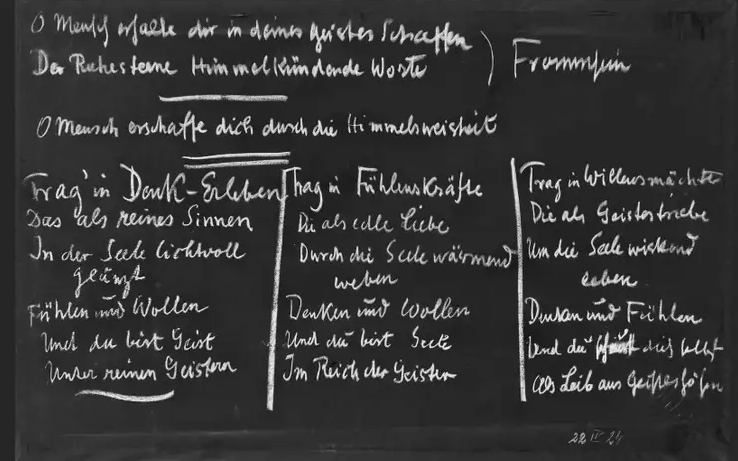 O Mensch erfalle dir in deines Geistes Schaffen
Der Ruhesterne Himmelkündende Worte
Frommsein
O Mensch erschaffe dich durch die Himmelsweisheit
Trag' in Denk-Erleben
Das als reines Sinnen
In der Seele lichtvoll
glänzt
Fühlen und Wollen
Und du bist Geist
Unter reinen Geistern
Trag in Fühlenskräfte
Die als edle Liebe
Durch die Seele wärmend
weben
Denken und Wollen
Und du bist Seele
Im Reich der Geister
Trag in Willensmächte
Die als Geistestriebe
Um die Seele wirkend
leben
Denken und Fühlen
Und du dich selbst
Als Leib aus Geisteshöhen
22 IV 24